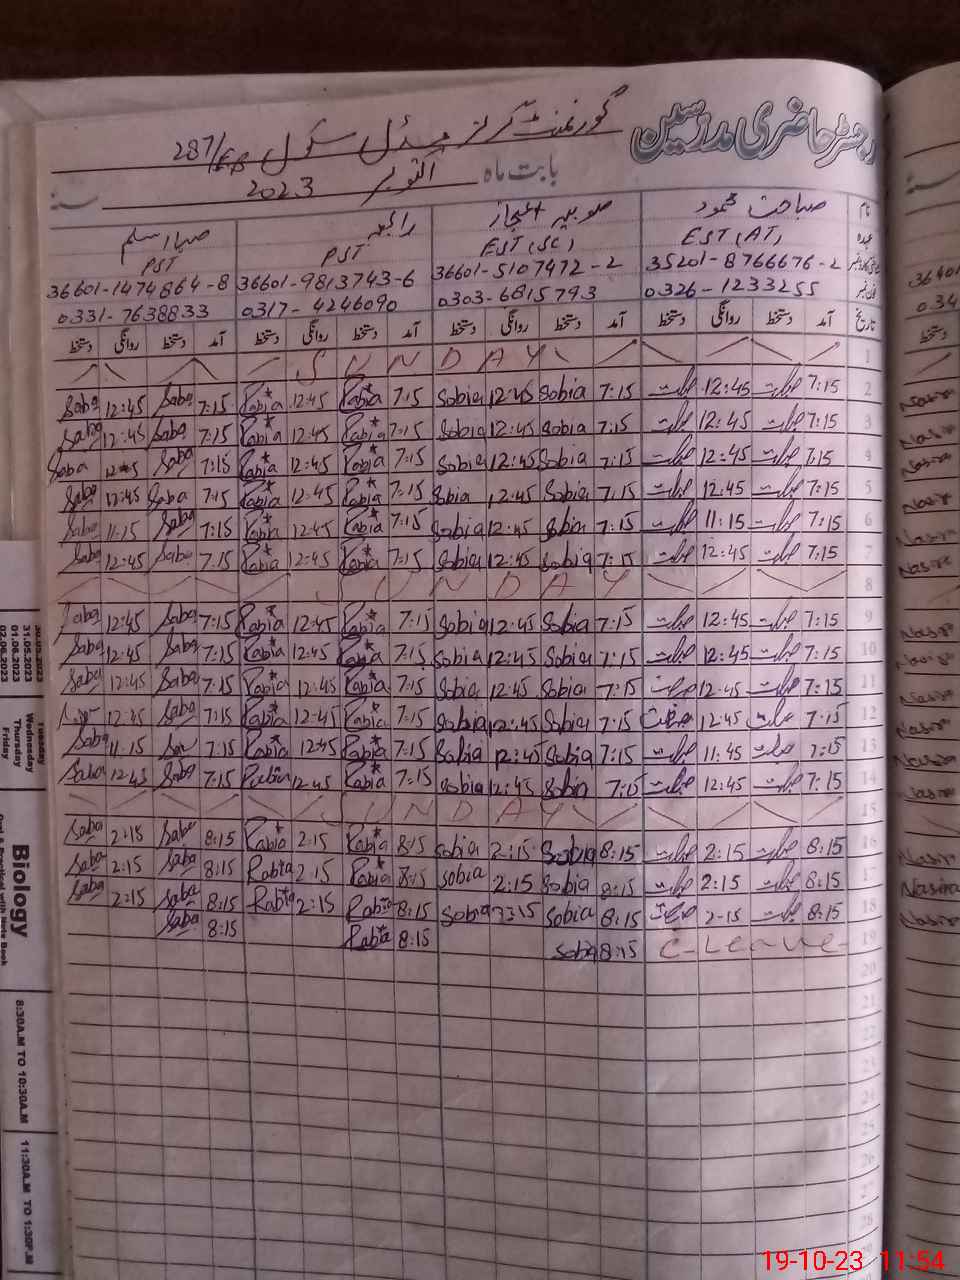 رجسٹر حاضری مدرسین
گورنمنٹ گرلز مڈل سکول 287/EB
بابت ماہ اکتوبر 2023 سنہ
نام صباحت محمود صوبیہ اعجاز رابعہ صبا اسلم
عہدہ EST (AT) EST (SC) PST PST
35201-8766676-2 36601-5107472-2 36601-9813743-6 36601-1474864-8
فون نمبر 0326-1233255 0303-6815793 0317-4246090 0331-7638833
تاریخ آمد دستخط روانگی دستخط آمد دستخط روانگی دستخط آمد دستخط روانگی دستخط آمد دستخط روانگی دستخط
1 SUNDAY
2 7:15 صباحت 12:45 صباحت 7:15 Sobia 12:45 Sobia 7:15 Rabia 12:45 Rabia 7:15 Saba 12:45 Saba
3 7:15 صباحت 12:45 صباحت 7:15 Sobia 12:45 Sobia 7:15 Rabia 12:45 Rabia 7:15 Saba 12:45 Saba
4 7:15 صباحت 12:45 صباحت 7:15 Sobia 12:45 Sobia 7:15 Rabia 12:45 Rabia 7:15 Saba Saba
5 7:15 صباحت 12:45 صباحت 7:15 Sobia 12:45 Sobia 7:15 Rabia 12:45 Rabia 7:15 Saba 12:45 Saba
6 7:15 صباحت 11:15 صباحت 7:15 Sobia 12:45 Sobia 7:15 Rabia 12:45 Rabia 7:15 Saba 11:15 Saba
7 7:15 صباحت 12:45 صباحت 7:15 Sobia 12:45 Sobia 7:15 Rabia 12:45 Rabia 7:15 Saba 12:45 Saba
8 SUNDAY
9 7:15 صباحت 12:45 صباحت 7:15 Sobia 12:45 Sobia 7:15 Rabia 12:45 Rabia 7:15 Saba 12:45 Saba
10 7:15 صباحت 12:45 صباحت 7:15 Sobia 12:45 Sobia 7:15 Rabia 12:45 Rabia 7:15 Saba 12:45 Saba
11 7:15 صباحت 12:45 صباحت 7:15 Sobia 12:45 Sobia 7:15 Rabia 12:45 Rabia 7:15 Saba 12:45 Saba
12 7:15 صباحت 12:45 صباحت 7:15 Sobia 12:45 Sobia 7:15 Rabia 12:45 Rabia 7:15 Saba 12:45
13 7:15 صباحت 11:45 صباحت 7:15 Sobia 12:45 Sobia 7:15 Rabia 12:45 Rabia 7:15 11:15 Saba
14 7:15 صباحت 12:45 صباحت 7:15 Sobia 12:45 Sobia 7:15 Rabia 12:45 Rabia 7:15 Saba 12:45 Saba
15 SUNDAY
16 8:15 صباحت 2:15 صباحت 8:15 Sobia 2:15 Sobia 8:15 Rabia 2:15 Rabia 8:15 Saba 2:15 Saba
17 8:15 صباحت 2:15 صباحت 8:15 Sobia 2:15 Sobia 8:15 Rabia 2:15 Rabia 8:15 Saba 2:15 Saba
18 8:15 صباحت 2-15 صباحت 8:15 Sobia Sobia 8:15 Rabia 2:15 Rabia 8:15 Saba 2:15 Saba
19 C-Leave 8:15 Sobia 8:15 Rabia 8:15 Saba
20
21
22
23
24
25
26
27
28
Nasira
30.05.2023 Tuesday
31.05.2023 Wednesday
01.06.2023 Thursday
02.06.2023 Friday
Biology
8:30A.M TO 10:30A.M
11:30A.M TO 1:30P.M
19-10-23 11:54